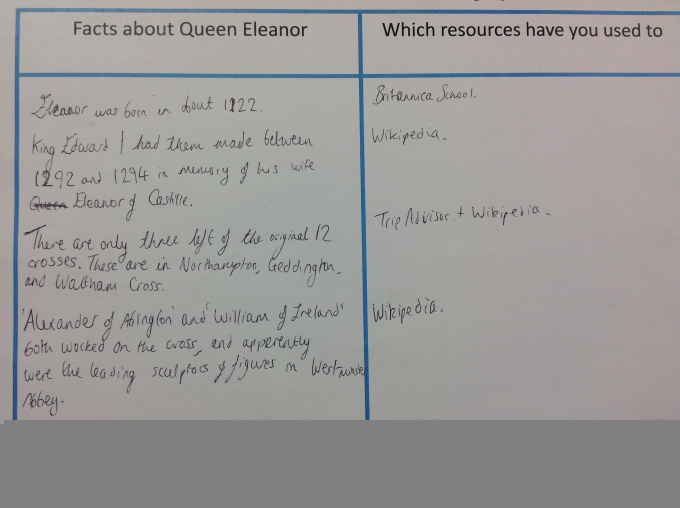 Facts about Queen Eleanor
Which resources have you used to
Eleanor was born in about 1122.
Britannica School.
King Edward I had them made between
1292 and 1294 in memory of his wife
Queen Eleanor of Castile.
Wikipedia.
There are only three left of the original 12
crosses. These are in Northampton, Geddington,
and Waltham Cross.
Trip Advisor + Wikipedia.
'Alexander of Abington' and 'William of Ireland'
both worked on the cross, and apperently
were the leading sculptors of figures in Westminster
Abbey.
Wikipedia.